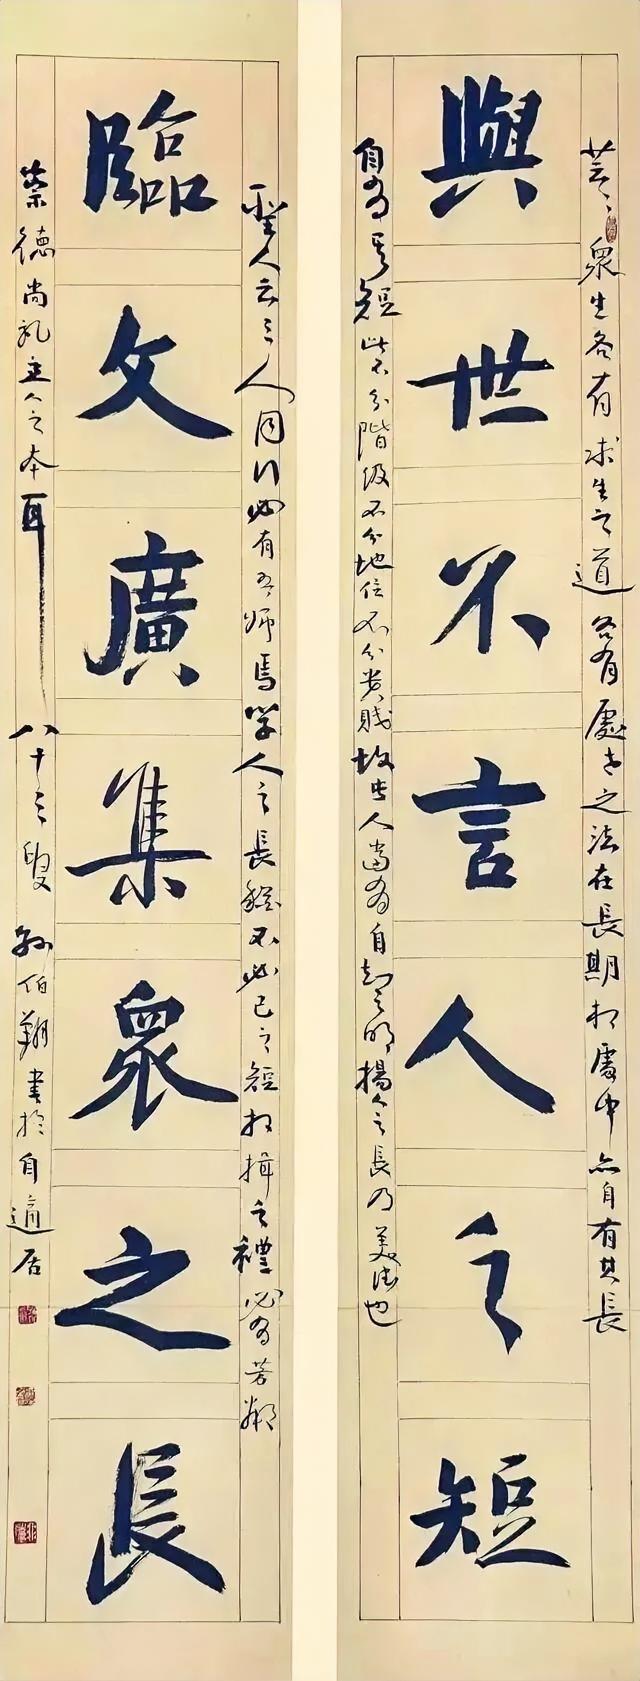 與世不言人之短
芸芸眾生各有求生之道各有處世之法在長期相處中亦自有其長
自為其短此不分階級不分地位不分貴賤故世人當為自知之明揚人之長乃美德也
臨文廣集眾之長
聖人云三人同行必有吾師焉學人之長
不必己之短相揖之禮必為
崇德尚礼立人之本耳
八十三叟孫伯翔書於自適居